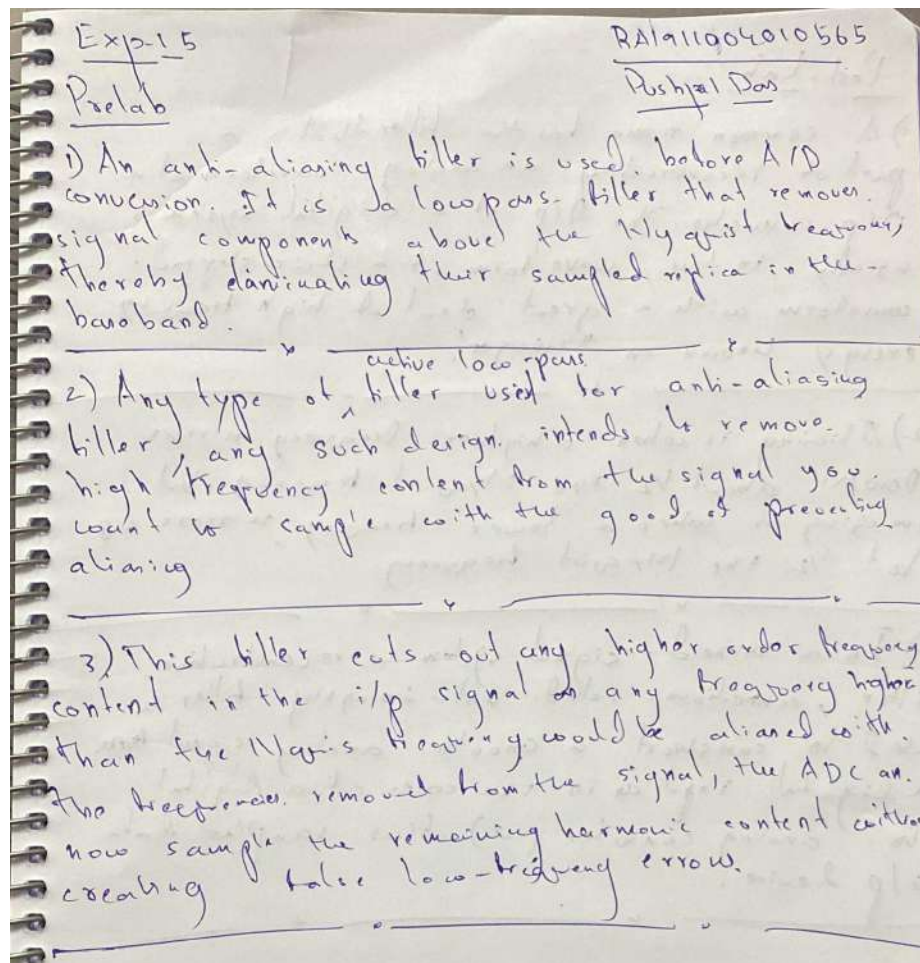 Exp-15
RA1911004010565
Prelab
Pushpal Das
1) An anti-aliasing filter is used before A/D
conversion. It is a lowpass filter that removes
signal components above the Nyquist frequency,
thereby eliminating their sampled replica in the
baseband.
active low-pass
2) Any type of filter used for anti-aliasing
filter, any such design intends to remove
high frequency content from the signal you
want to sample with the good of preventing
aliasing
3) This filter cuts out any higher order frequency
content in the i/p signal any frequency higher
than the Nyquis frequency would be aliased with.
The frequencies removed from the signal, the ADC an
now sample the remaining harmonic content
creating false low-frequency errow.